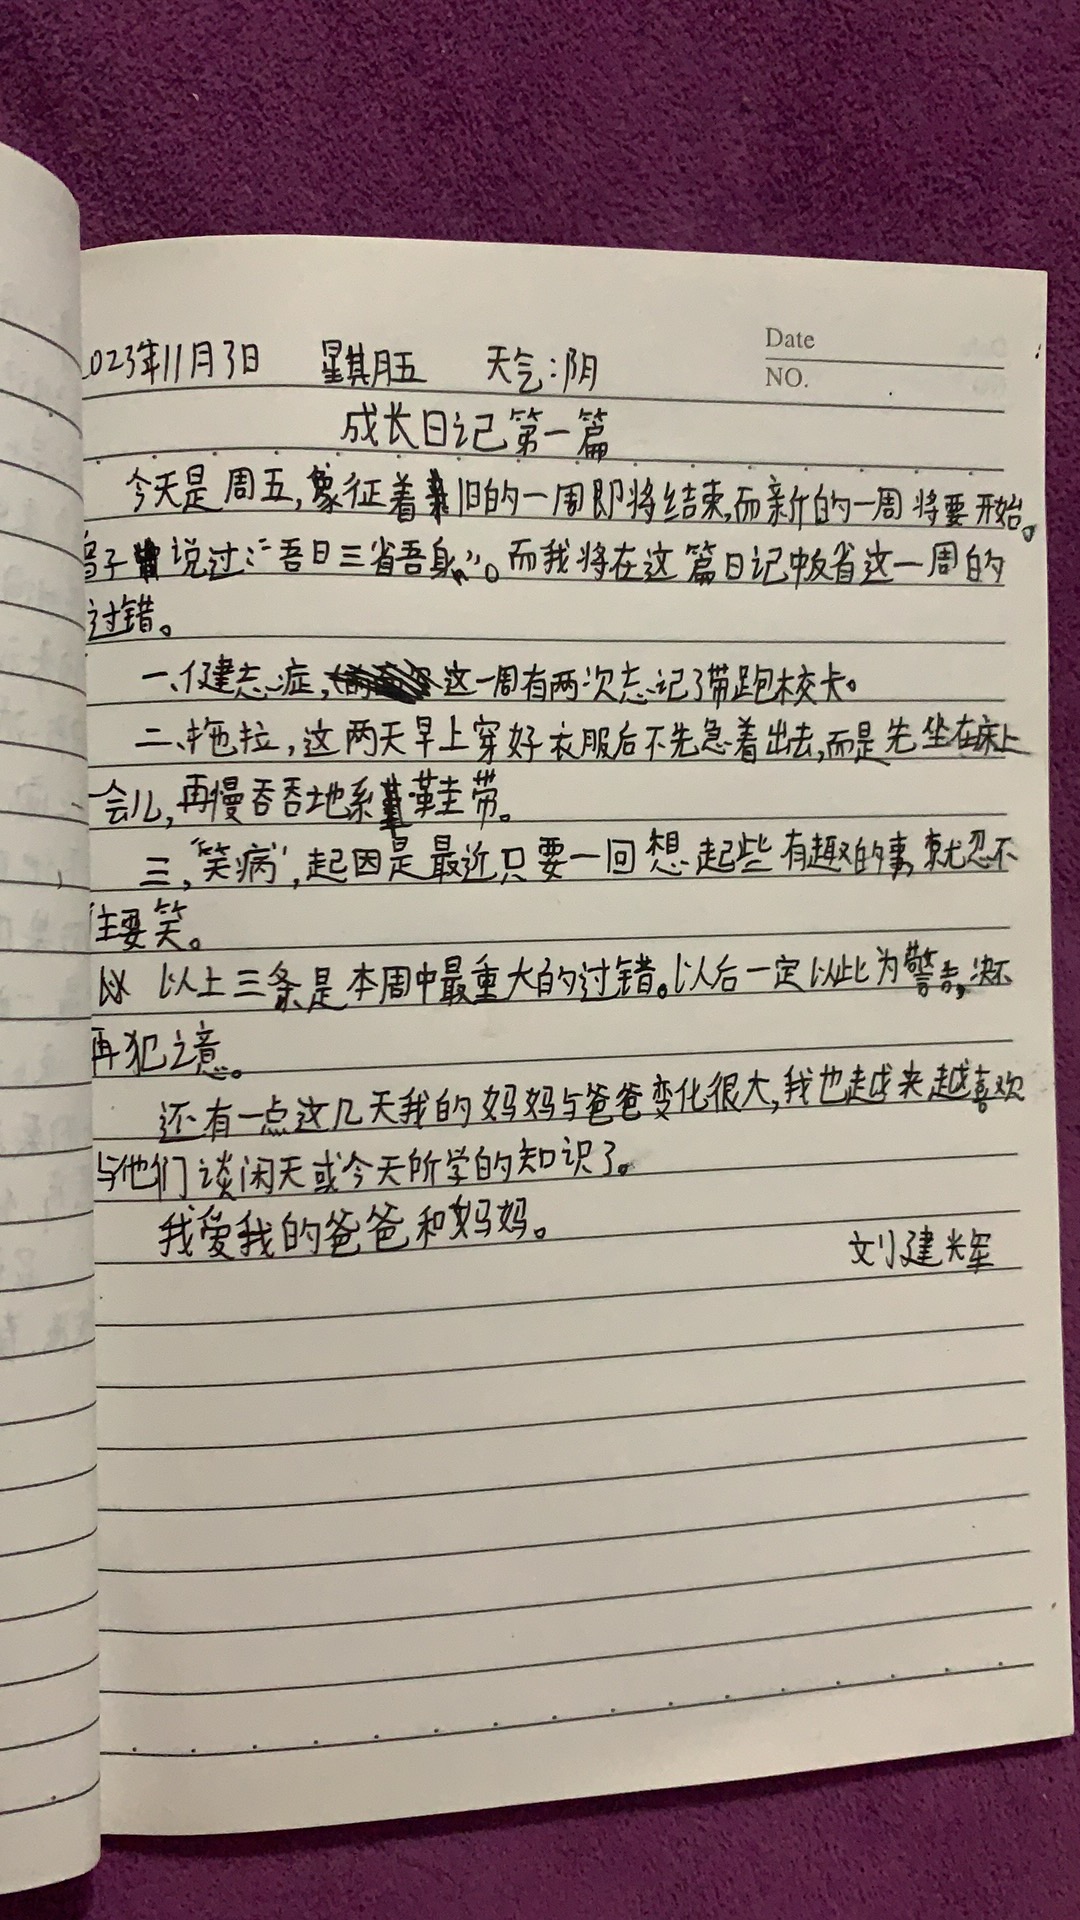 Date
NO.
2023年11月3日 星期五 天气:阴
成长日记第一篇
今天是周五,象征着旧的一周即将结束,而新的一周将要开始。
曾子说过:“吾日三省吾身”。而我将在这篇日记中反省这一周的
过错。
一、健忘症,这一周有两次忘记了带跑校卡。
二、拖拉,这两天早上穿好衣服后不先急着出去,而是先坐在床上
一会儿,再慢吞吞地系鞋带。
三,“笑病”,起因是最近只要一回想起些有趣的事,就忍不
住要笑。
以上三条是本周中最重大的过错。以后一定以此为警告,决不
再犯之意。
还有一点这几天我的妈妈与爸爸变化很大,我也越来越喜欢
与他们谈闲天或今天所学的知识了。
我爱我的爸爸和妈妈。
刘建辉